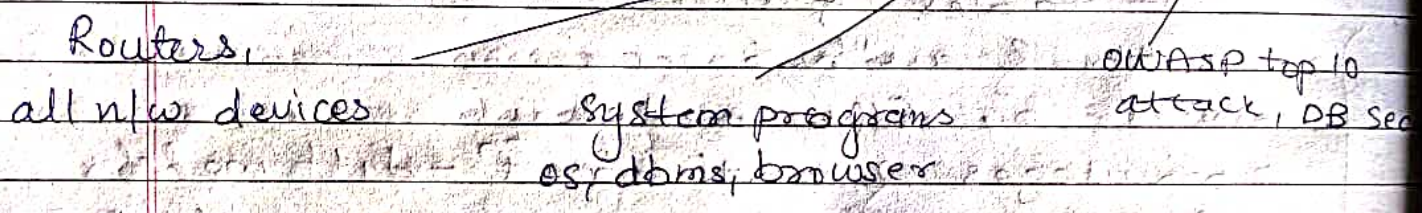 Routers,
all n/w devices
system programs
os, dbms, browser
OWASP top 10
attack, DB Sec